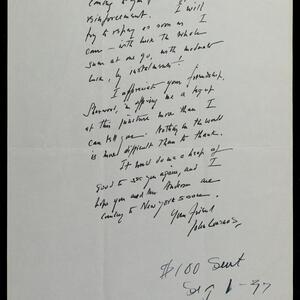 reinforcement. I will
try to repay as soon as I
can – with luck the whole
sum at one go, with moderate
luck, by instalments!
I appreciate your friendship,
Sherwood, in offering me a leg up
at this juncture more than I
can tell you. Nothing in the world
is more difficult than to thank.
It would do me a heap of
good to see you again, and I
hope you and Mrs Anderson are
coming to New York soon.
Your friend
$100 Sent